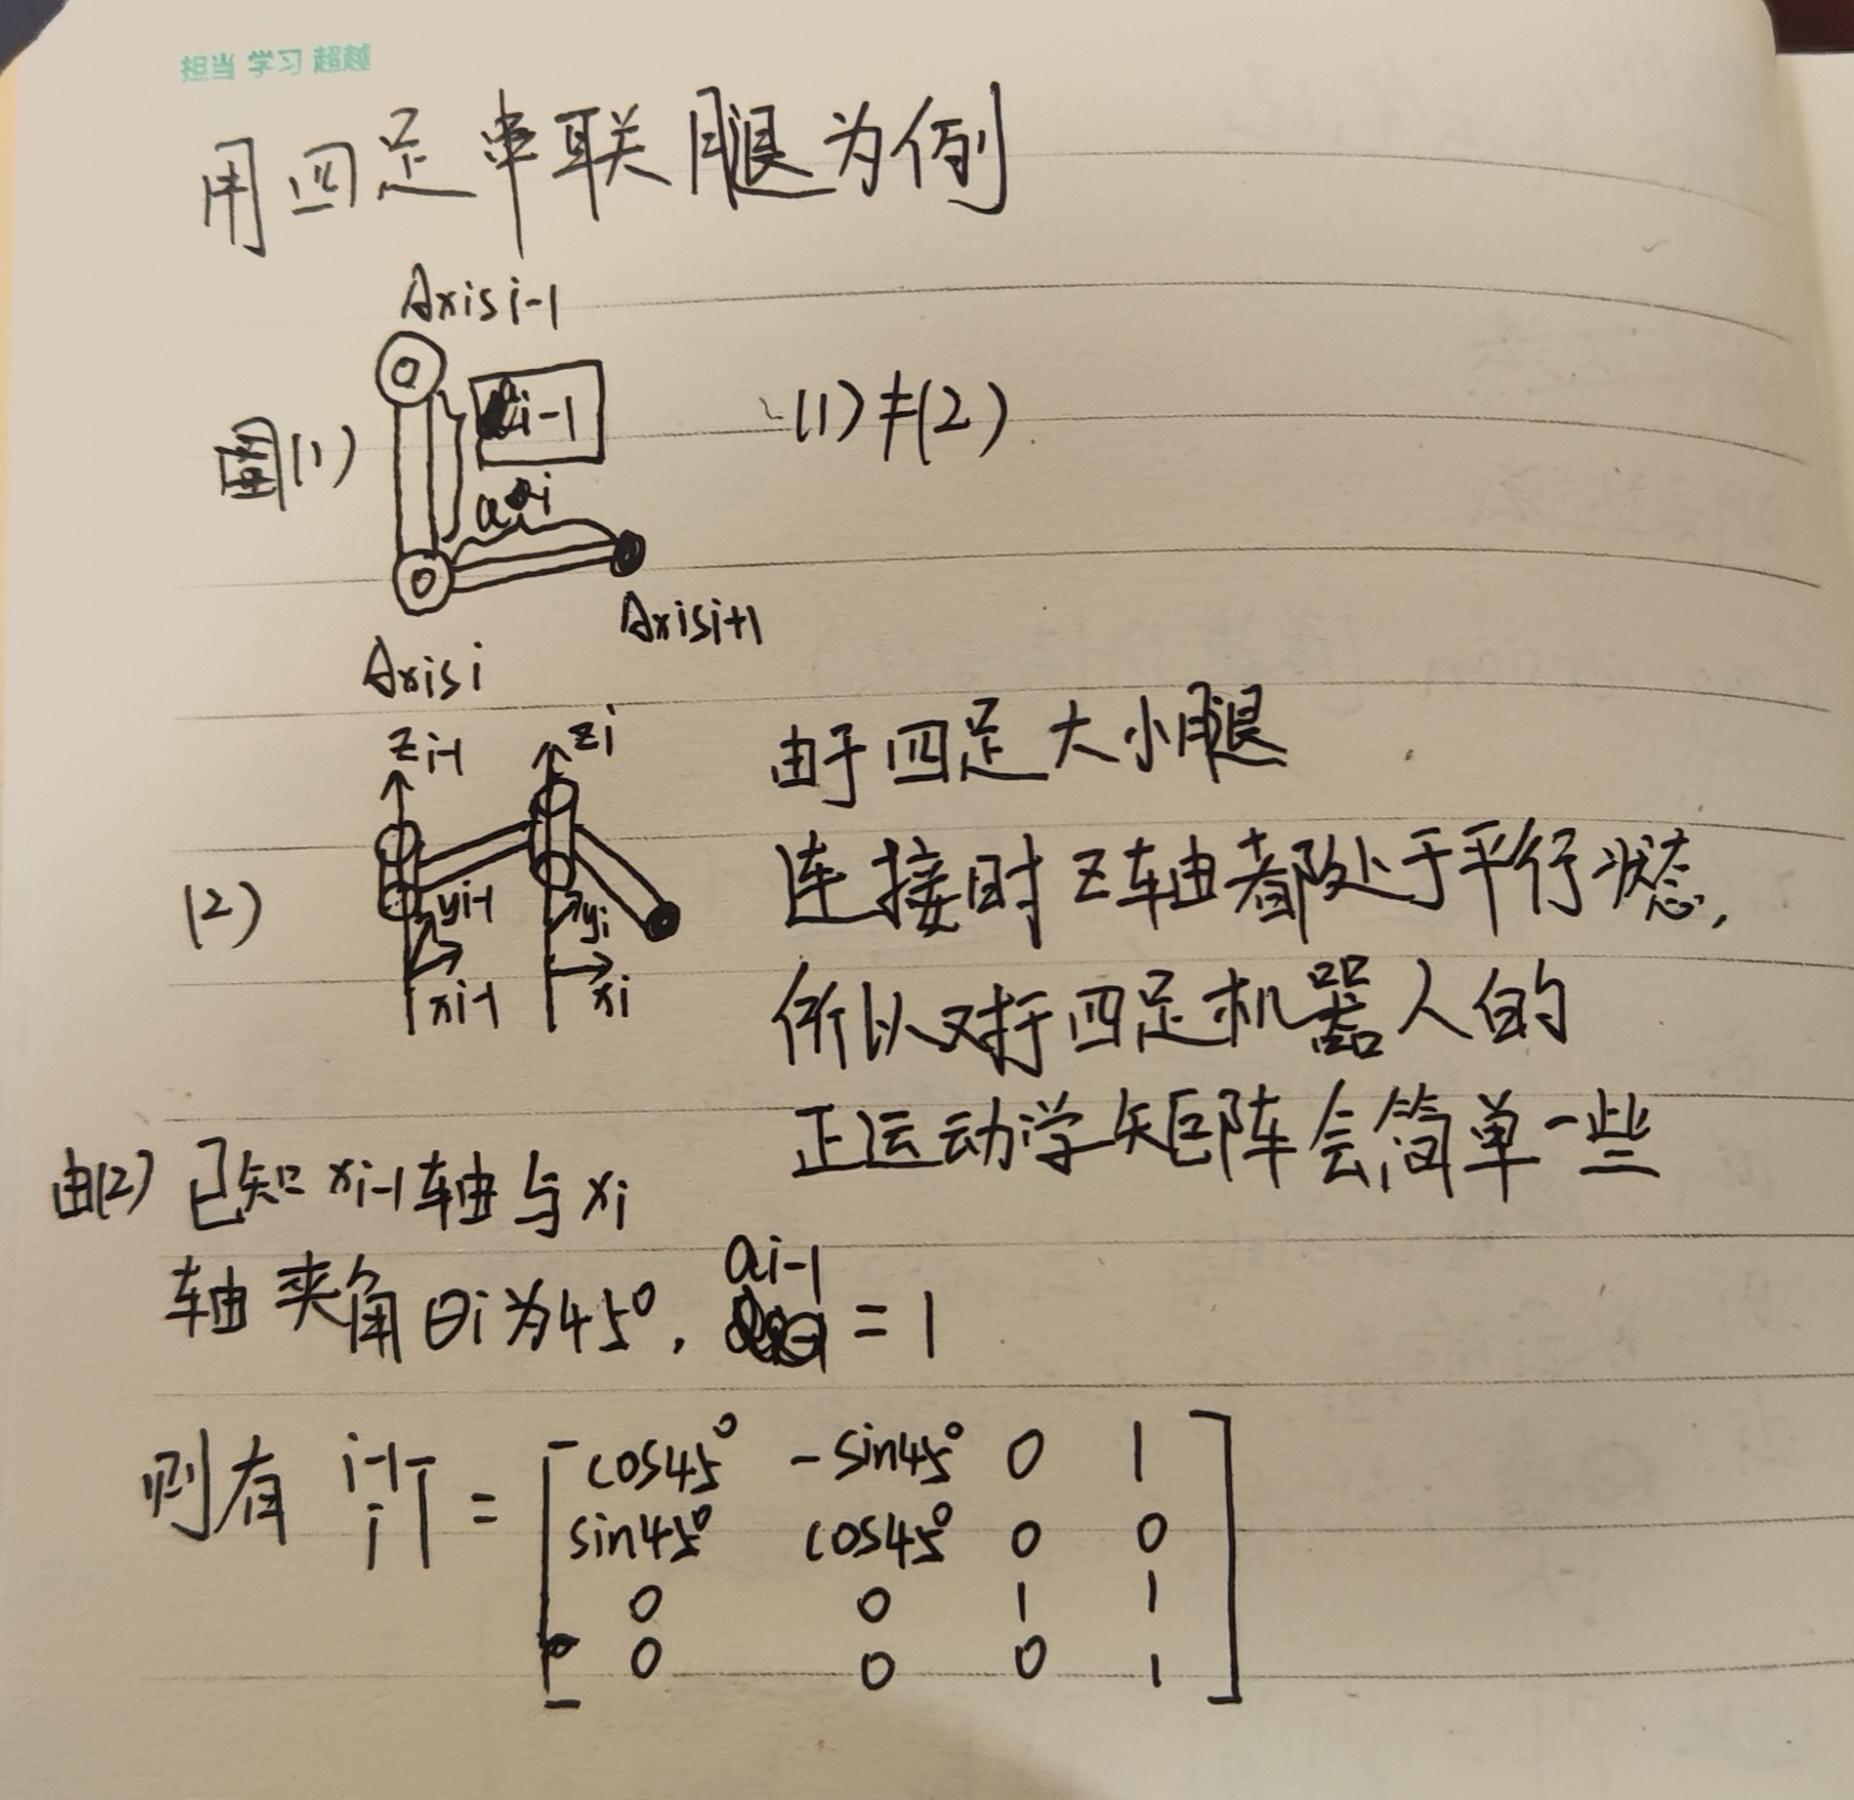 担当 学习 超越
用四足串联腿为例
Axis i-1
图(1)
ai-1
(1)≠(2)
ai
Axis i+1
Axis i
zi-1
zi
由于四足大小腿
连接时z轴都处于平行状态,
(2)
yi-1
yi
xi-1
xi
所以对于四足机器人的
正运动学矩阵会简单一些
由(2) 已知xi-1轴与xi
轴夹角θi为45°, ai-1 = 1
则有 i-1 i T = [ cos45° -sin45° 0 1
sin45° cos45° 0 0
0 0 1 1
0 0 0 1 ]